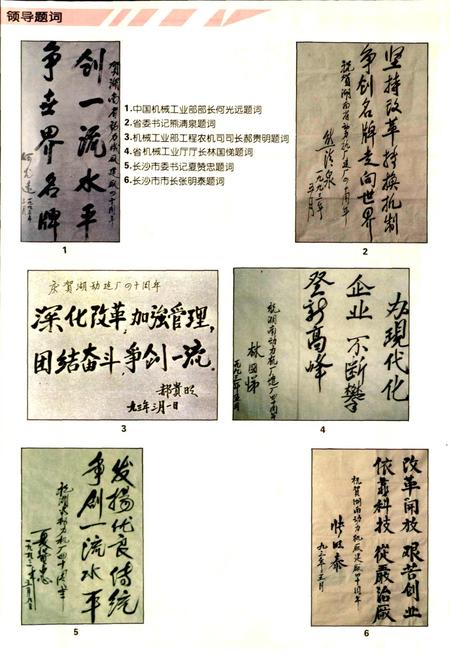 领导题词
1.中国机械工业部部长何光远题词
2.省委书记熊清泉题词
3.机械工业部工程农机司司长郝贵明题词
4.省机械工业厅厅长林国悌题词
5.长沙市委书记夏赞忠题词
6.长沙市市长张明泰题词
贺湖南省动力机厂建厂四十周年
创一流水平
争世界名牌
何光远
1
坚持改革转换机制
争创名牌走向世界
祝贺湖南省动力机厂建厂四十周年
熊清泉
一九九三年
2
庆贺湖动建厂四十周年
深化改革,加強管理,
团结奋斗,争创一流.
郝贵明
九三年三月一日
3
办现代化
企业 不断攀
登新高峰
祝湖南动力机厂建厂四十周年
林国悌
4
发扬优良传统
争创一流水平
5
改革开放 艰苦创业
依靠科技 從嚴治厰
祝贺湖南动力机厰建厰四十周年
6